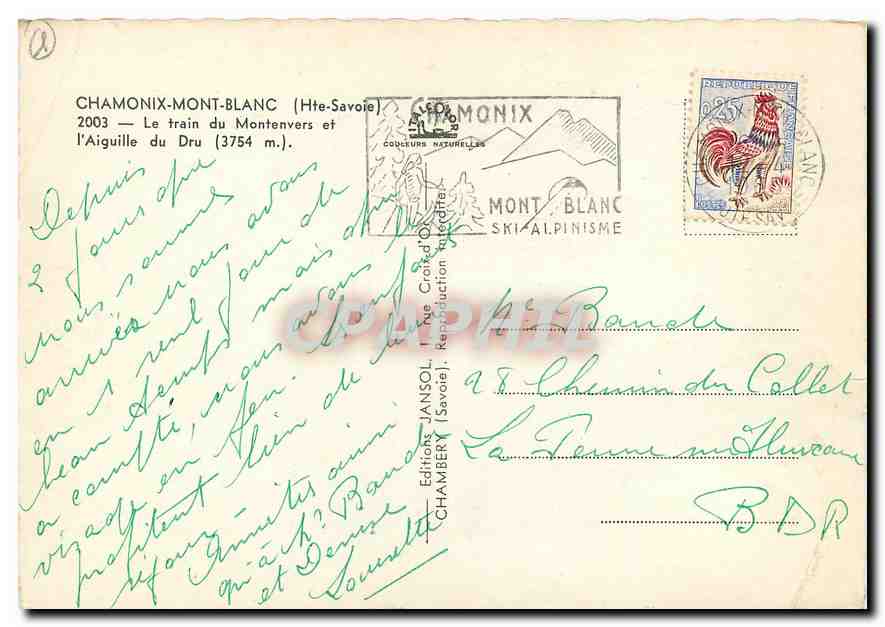 CHAMONIX-MONT-BLANC (Hte-Savoie)
2003 — Le train du Montenvers et
l'Aiguille du Dru (3754 m.).
CHAMONIX
ITALCOLOR
COULEURS NATURELLES
MONT BLANC
SKI-ALPINISME
REPUBLIQUE FRANÇAISE
0,25
POSTES
MONT BLANC
Depuis
2 jours que
nous sommes
arrivés nous avons
eu 1 seul jour de
beau temps mais
a compte, nous avons
en
profitent bien de leur
séjour — Amitiés ainsi
qu'à Mr Baude
et Denise
Lousette
— Editions JANSOL, 1 rue Croix-d'Or
CHAMBERY (Savoie). Reproduction interdite.
CPAPHIL
Me Baude
28 Chemin du Collet
La Penne sur Huveaune
BDR